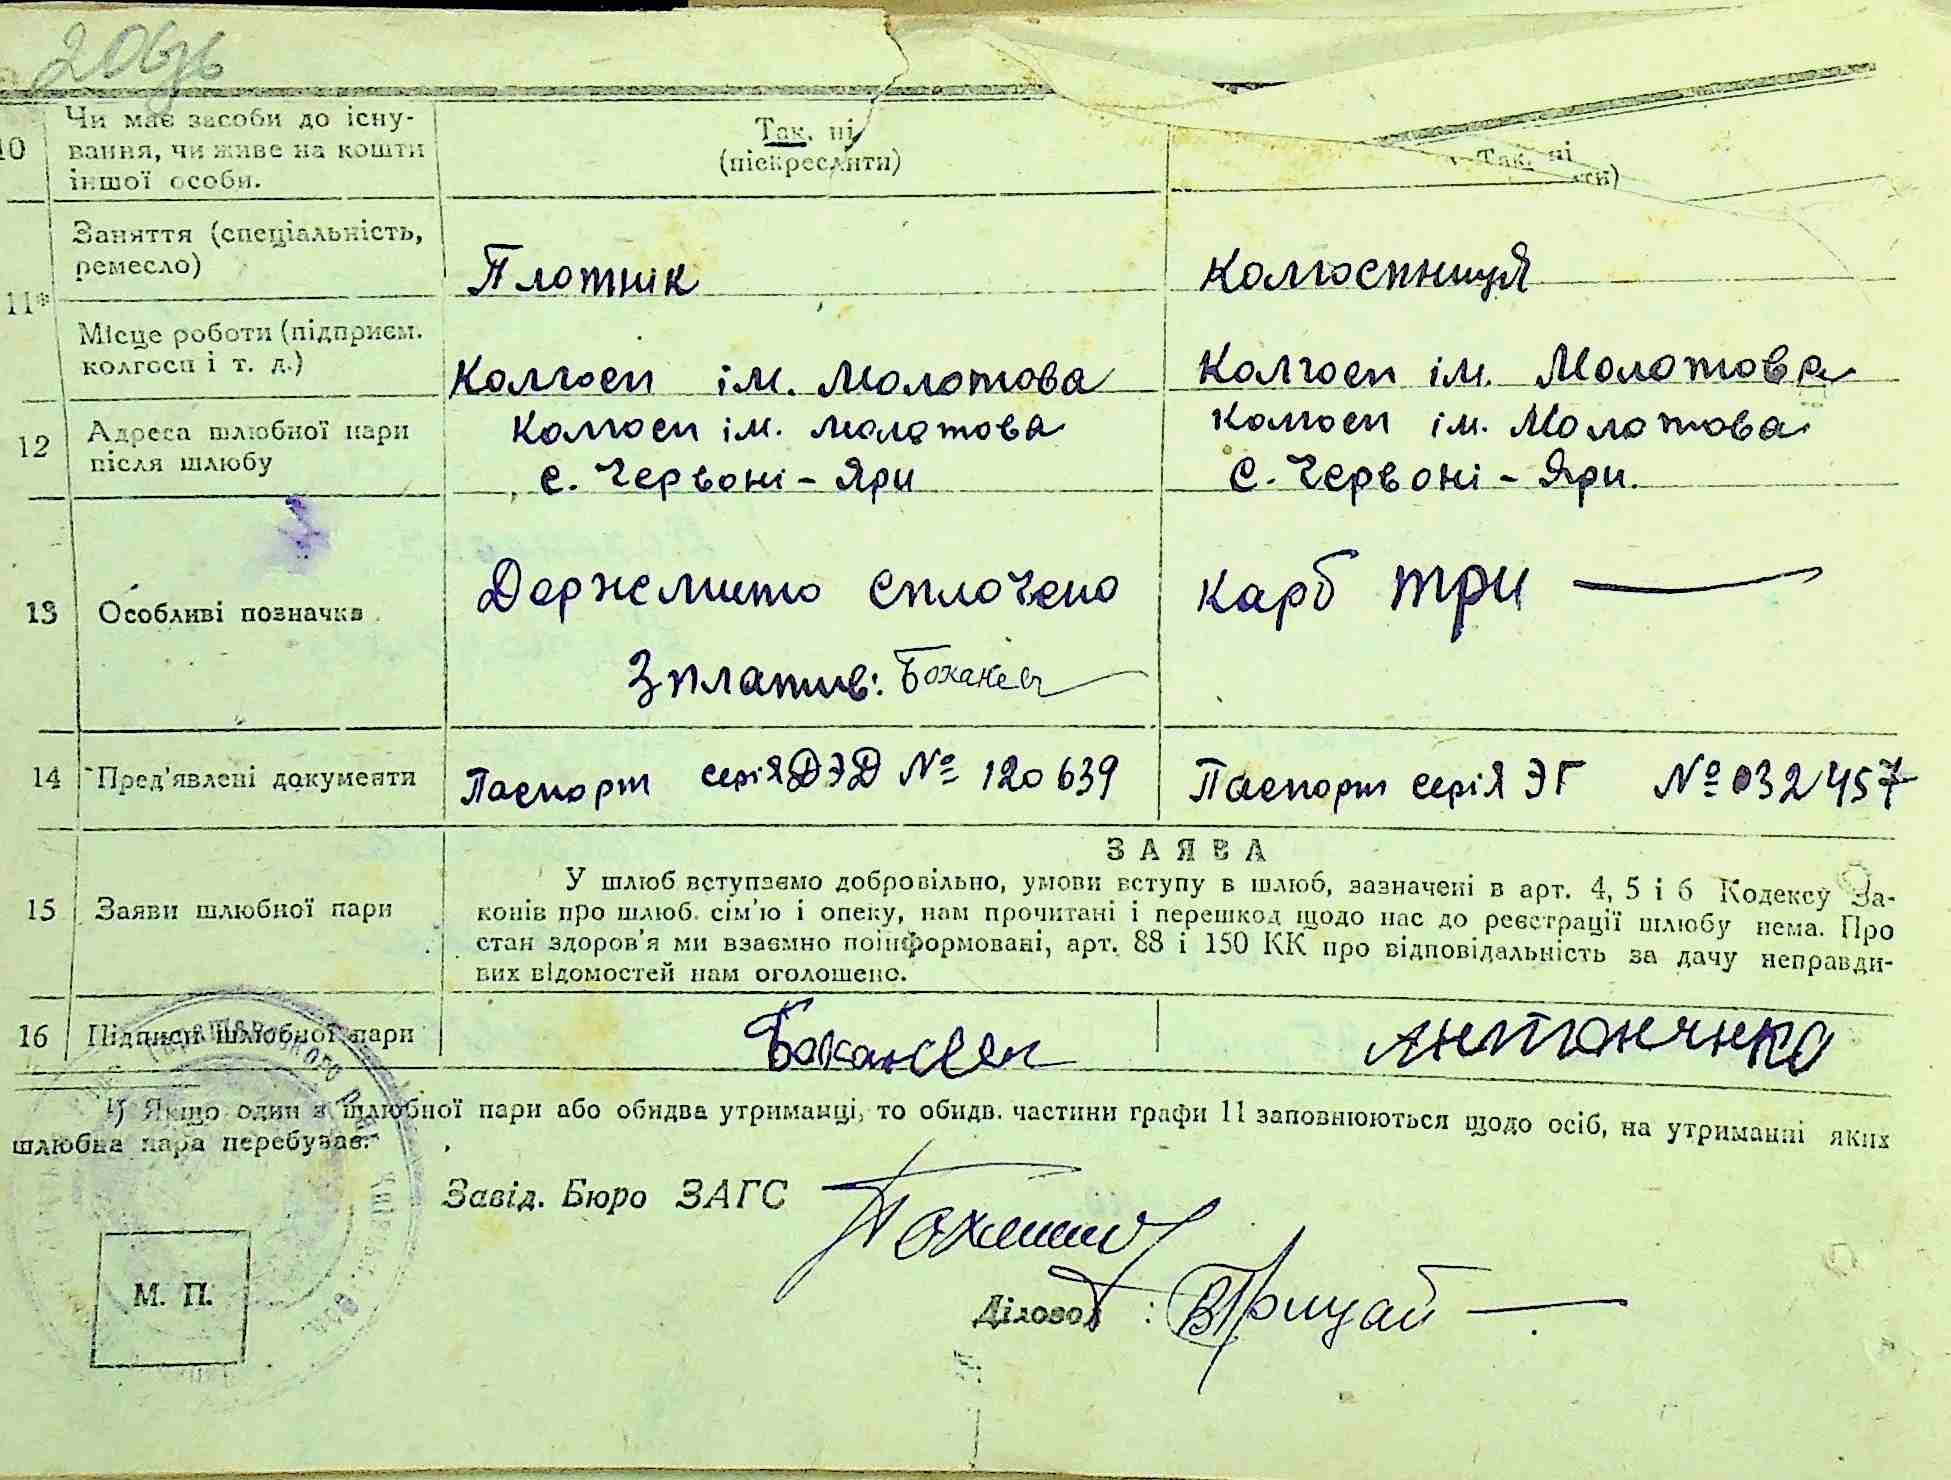 206зв
10 Чи має засоби до існу-
вання, чи живе на кошти
іншої особи.
Так. ні
(піскреслити)
Так. ні
ити)
11*
Заняття (спеціальність,
ремесло)
Плотник
Колгоспниця
Місце роботи (підприєм.
колгосп і т. д.)
Колгосп ім. Молотова
Колгосп ім. Молотова
12 Адреса шлюбної пари
після шлюбу
Колгосп ім. Молотова
с. Червоні - Яри
Колгосп ім. Молотова
с. Червоні - Яри.
13 Особливі позначки
Держмито сплочено
Зплатив:
Карб три —
14 Пред'явлені документи
Паспорт серія ДЭД № 120639
Паспорт серія ЭГ № 032457
15 Заяви шлюбної пари
ЗАЯВА
У шлюб вступаємо добровільно, умови вступу в шлюб, зазначені в арт. 4, 5 і 6 Кодексу За-
конів про шлюб. сім'ю і опеку, нам прочитані і перешкод щодо нас до реєстрації шлюбу нема. Про
стан здоров'я ми взаємно поінформовані, арт. 88 і 150 КК про відповідальність за дачу неправди-
вих відомостей нам оголошено.
16 Підписи шлюбної пари
Антонченко
1) Якщо один з шлюбної пари або обидва утриманці, то обидв. частини графи 11 заповнюються щодо осіб, на утриманні яких
шлюбна пара перебуває.
Завід. Бюро ЗАГС
Діловод : ВГрицай —
М. П.